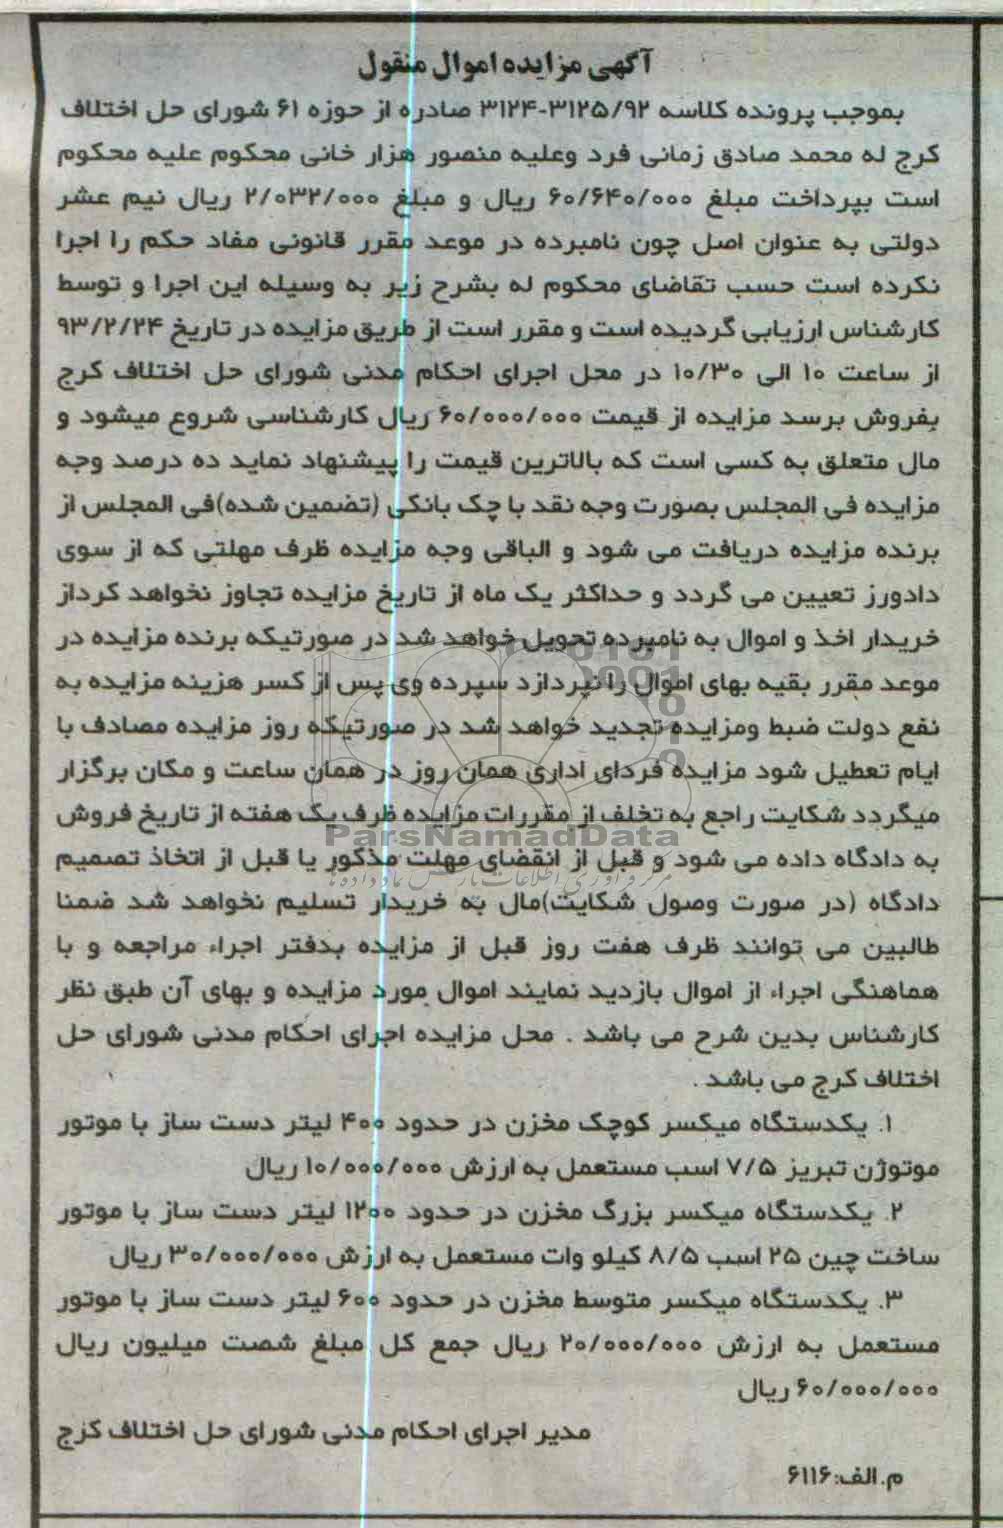 آگهی مزایده اموال منقول
بموجب پرونده کلاسه ۳۱۲۵/۹۲-۳۱۲۴ صادره از حوزه ۶۱ شورای حل اختلاف
کرج له محمد صادق زمانی فرد وعلیه منصور هزار خانی محکوم علیه محکوم
است بپرداخت مبلغ ۶۰/۶۴۰/۰۰۰ ریال و مبلغ ۲/۰۳۲/۰۰۰ ریال نیم عشر
دولتی به عنوان اصل چون نامبرده در موعد مقرر قانونی مفاد حکم را اجرا
نکرده است حسب تقاضای محکوم له بشرح زیر به وسیله این اجرا و توسط
کارشناس ارزیابی گردیده است و مقرر است از طریق مزایده در تاریخ ۹۳/۲/۲۴
از ساعت ۱۰ الی ۱۰/۳۰ در محل اجرای احکام مدنی شورای حل اختلاف کرج
بفروش برسد مزایده از قیمت ۶۰/۰۰۰/۰۰۰ ریال کارشناسی شروع میشود و
مال متعلق به کسی است که بالاترین قیمت را پیشنهاد نماید ده درصد وجه
مزایده فی المجلس بصورت وجه نقد با چک بانکی (تضمین شده)فی المجلس از
برنده مزایده دریافت می شود و الباقی وجه مزایده ظرف مهلتی که از سوی
دادورز تعیین می گردد و حداکثر یک ماه از تاریخ مزایده تجاوز نخواهد کرداز
خریدار اخذ و اموال به نامبرده تحویل خواهد شد در صورتیکه برنده مزایده در
موعد مقرر بقیه بهای اموال را نپردازد سپرده وی پس از کسر هزینه مزایده به
نفع دولت ضبط ومزایده تجدید خواهد شد در صورتیکه روز مزایده مصادف با
ایام تعطیل شود مزایده فردای اداری همان روز در همان ساعت و مکان برگزار
میگردد شکایت راجع به تخلف از مقررات مزایده ظرف یک هفته از تاریخ فروش
ParsNamadData
به دادگاه داده می شود و قبل از انقضای مهلت مذکور یا قبل از اتخاذ تصمیم
مرکز فرآوری اطلاعات پارس نماد داده ها
دادگاه (در صورت وصول شکایت)مال به خریدار تسلیم نخواهد شد ضمنا
طالبین می توانند ظرف هفت روز قبل از مزایده بدفتر اجراء مراجعه و با
هماهنگی اجراء از اموال بازدید نمایند اموال مورد مزایده و بهای آن طبق نظر
کارشناس بدین شرح می باشد . محل مزایده اجرای احکام مدنی شورای حل
اختلاف کرج می باشد .
۱. یکدستگاه میکسر کوچک مخزن در حدود ۴۰۰ لیتر دست ساز با موتور
موتوژن تبریز ۷/۵ اسب مستعمل به ارزش ۱۰/۰۰۰/۰۰۰ ریال
۲. یکدستگاه میکسر بزرگ مخزن در حدود ۱۲۰۰ لیتر دست ساز با موتور
ساخت چین ۲۵ اسب ۸/۵ کیلو وات مستعمل به ارزش ۳۰/۰۰۰/۰۰۰ ریال
۳. یکدستگاه میکسر متوسط مخزن در حدود ۶۰۰ لیتر دست ساز با موتور
مستعمل به ارزش ۲۰/۰۰۰/۰۰۰ ریال جمع کل مبلغ شصت میلیون ریال
۶۰/۰۰۰/۰۰۰ ریال
مدیر اجرای احکام مدنی شورای حل اختلاف کرج
م.الف:۶۱۱۶